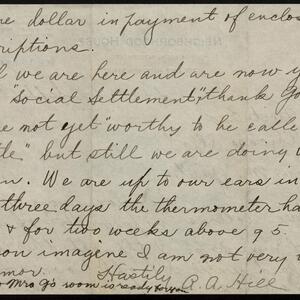 re dollar in payment of enclos
riptions.
l we are here and are now y
"Social Settlement," thank Go
re not yet "worthy to be calle
tle" but still we are doing
n. We are up to our ears in
three days the thermometer ha
& for two weeks above 95
you imagine I am not very
mor. Hastily R. A. Hill
Mrs G's room is ready for you